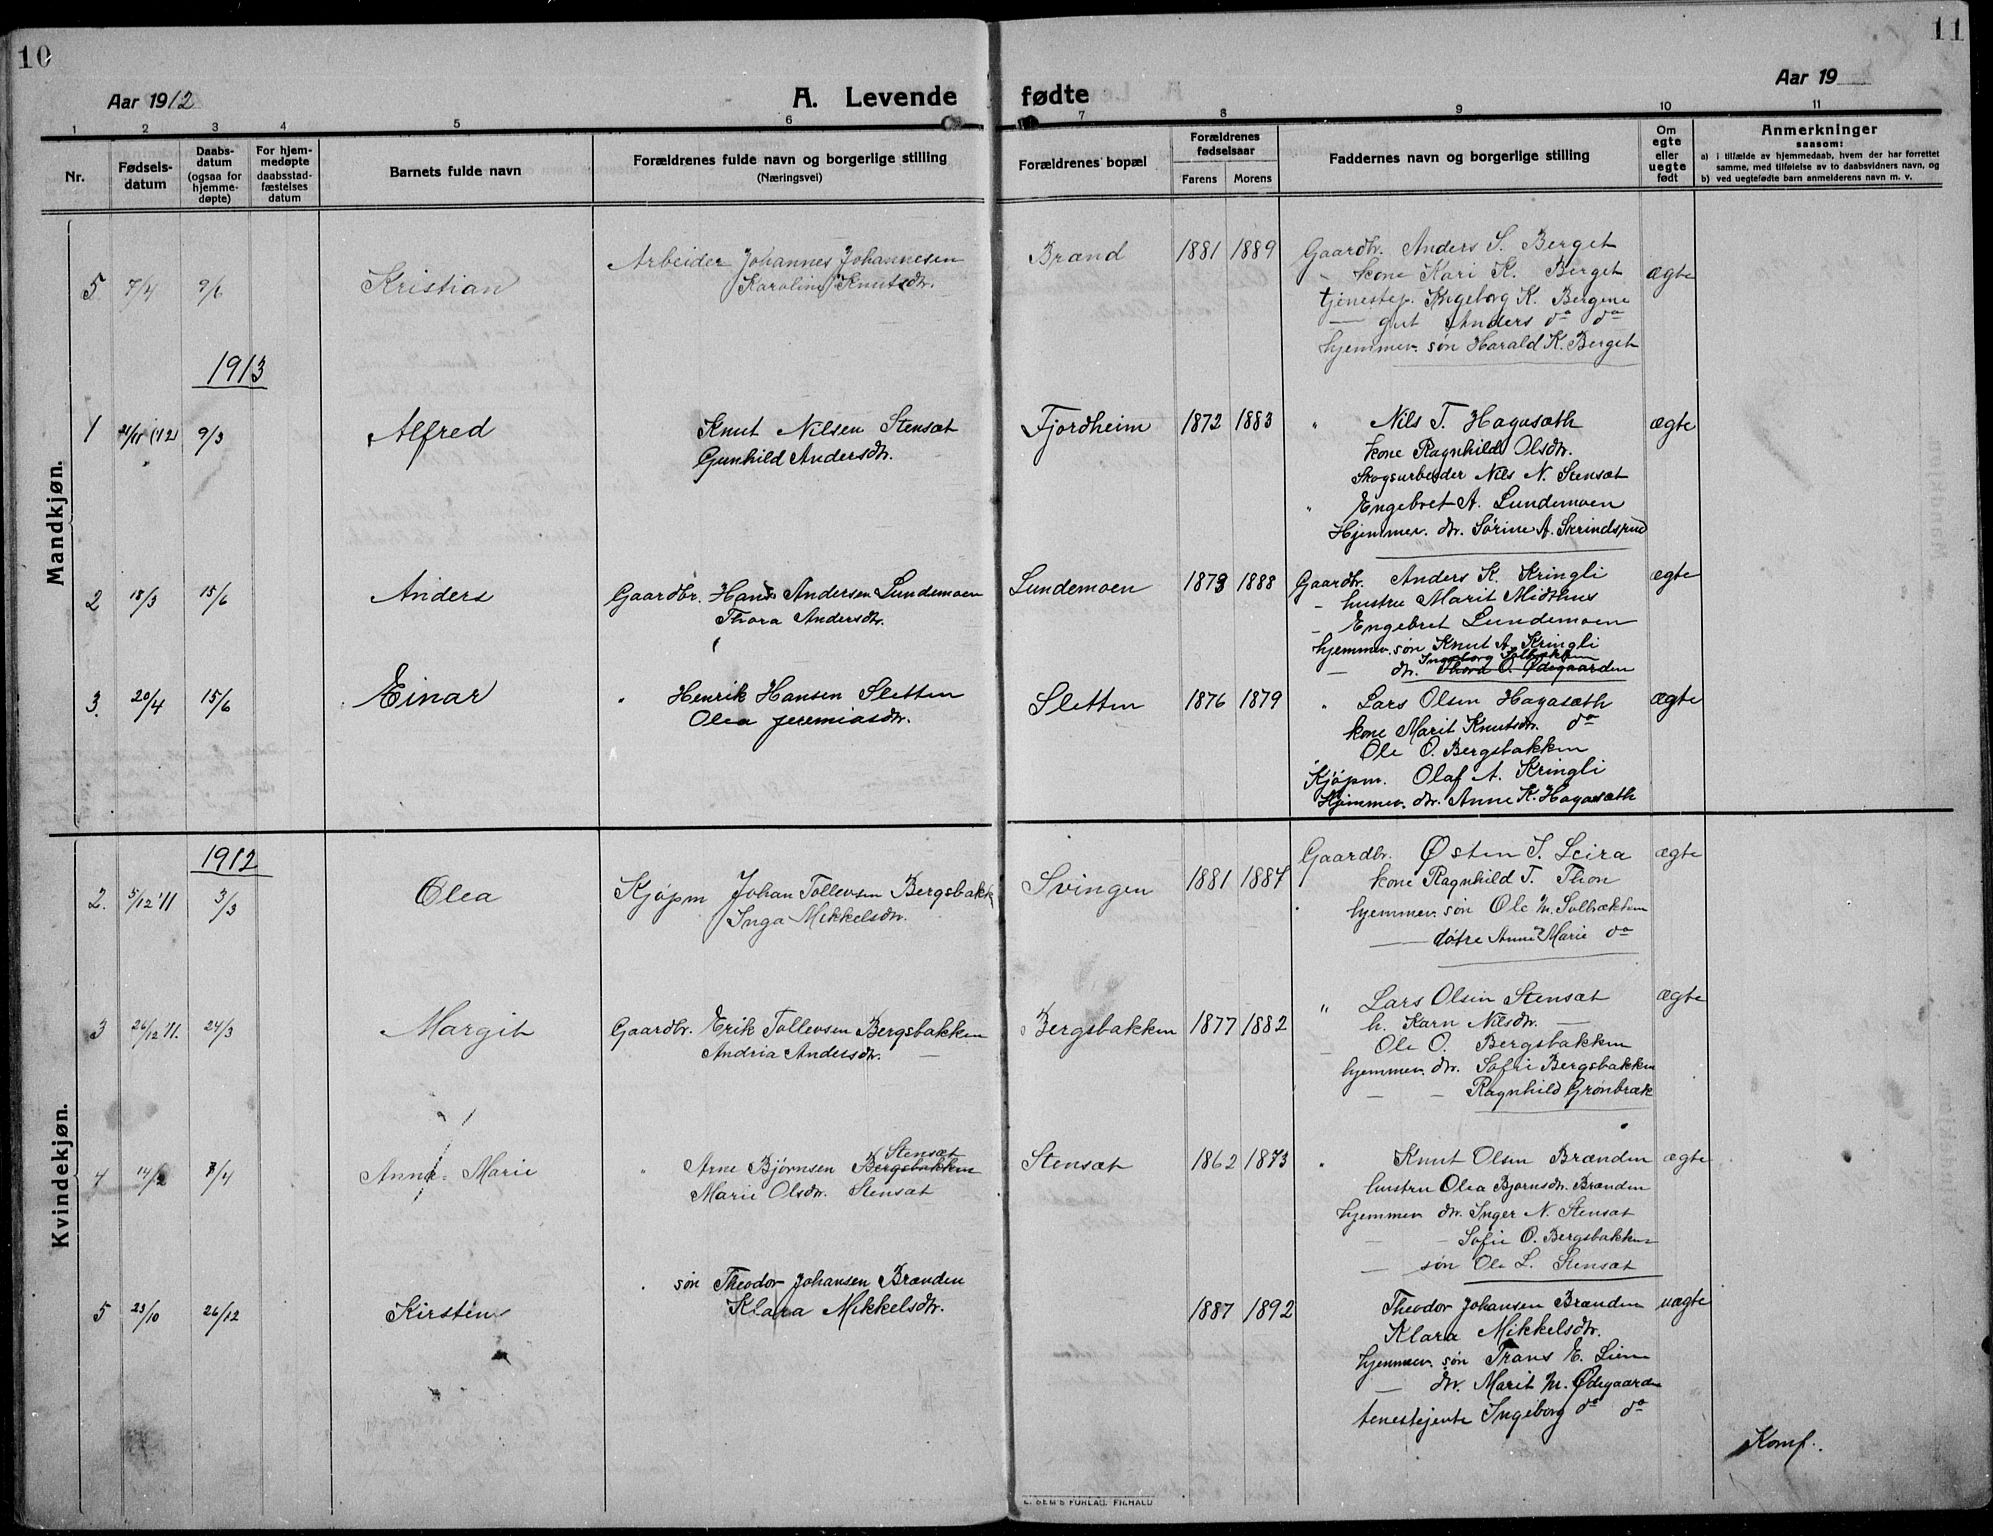 10
11
Aar 1912
A. Levende fødte
Aar 19
1 2 3 4 5 6 7 8 9 10 11
Nr.
Fødsels-
datum
Daabs-
datum
(ogsaa for
hjemme-
døpte)
For hjem-
medøpte
daabsstad-
fæstelses
datum
Barnets fulde navn
Forældrenes fulde navn og borgerlige stilling
(Næringsvei)
Forældrenes bopæl
Forældrenes
fødselsaar
Farens Morens
Faddernes navn og borgerlige stilling
Om
egte
eller
uegte
født
Anmerkninger
saasom:
a) i tilfælde av hjemmedaab, hvem der har forrettet
samme, med tilføielse av to daabsvidners navn, og
b) ved uegtefødte barn anmelderens navn m. v.
Mandkjøn.
5 7/4 9/6 Kristian
Arbeider Johannes Johannesen
Karoline Knutsdtr.
Brænd 1881 1889
Gaardbr. Anders S. Berget
" kone Kari K. Berget
tjenestep. Ingeborg K. Bergene
— gut Anders do do
hjemmev. søn Harald K. Berget
ægte
1913
1 21/11 (12) 9/3 Alfred
Knut Nilsen Stensæt
Gunhild Andersdtr.
Fjordheim 1872 1883
" Nils T. Hagasæth
kone Ragnhild Olsdtr.
Skogsarbeider Nils N. Stensæt
" Engebret A. Lundemoen
Hjemmev. dtr. Sørine A. Skrindsrud
ægte
2 18/3 15/6 Anders
Gaardbr. Hans Andersen Lundemoen
Thora Andersdtr.
Lundemoen 1873 1888
Gaardbr. Anders K. Kringli
- hustru Marit Midthus
- Engebret Lundemoen
hjemmev. søn Knut A. Kringli
Ingeborg Solbrækken
— dtr. Thora O. Ødegaarden
ægte
3. 20/4 15/6 Einar
" Henrik Hansen Sletten
Olea Jeremiasdtr.
Sletten 1876 1879
" Lars Olsen Hagasæth
kone Marit Knutsdtr. do
Ole O. Bergsbakken
Kjøpm. Olaf A. Kringli
Hjemmev. dtr. Anne K. Hagasæth
ægte
Kvindekjøn.
1912
2. 5/12 '11 3/3 Olea
Kjøpm Johan Tollevsen Bergsbakk
Inga Mikkelsdtr.
Svingen 1881 1887
Gaardbr. Østen T. Leira
kone Ragnhild T. Thon
hjemmev. søn Ole M. Solbrækken
— døtre Anne Marie do
ægte
3 26/12 11. 24/3 Margit
Gaardbr. Erik Tollevsen Bergsbakken
Andria Andersdtr. —
Bergsbakken 1877 1882
" Lars Olsen Stensæt
h. Karn Nilsdtr. —
- Ole O. Bergsbakken
hjemmev. dtr. Sofie Bergsbakken
— - Ragnhild Grønbræk
ægte
4 14/2 8/4 Anna Marie
Stensæt
" Arne Bjørnsen Bergsbakken
Marie Olsdtr. Stensæt
Stensæt 1862 1873
" Knut Olsen Brænden
hustru Olea Bjørnsdtr. Brænden
hjemmev dtr. Inger N. Stensæt
— - Sofie O. Bergsbakken
— søn Ole L. Stensæt
ægte
5 23/10 26/12 Kirsten
. søn Theodor Johansen Brænden
Klara Mikkelsdtr.
1887 1892
Theodor Johansen Brænden
Klara Mikkelsdtr.
hjemmev. søn Frans E. Lien
— dtr. Marit M. Ødegaarden
tenestejente Ingeborg do do
uægte
Komf.